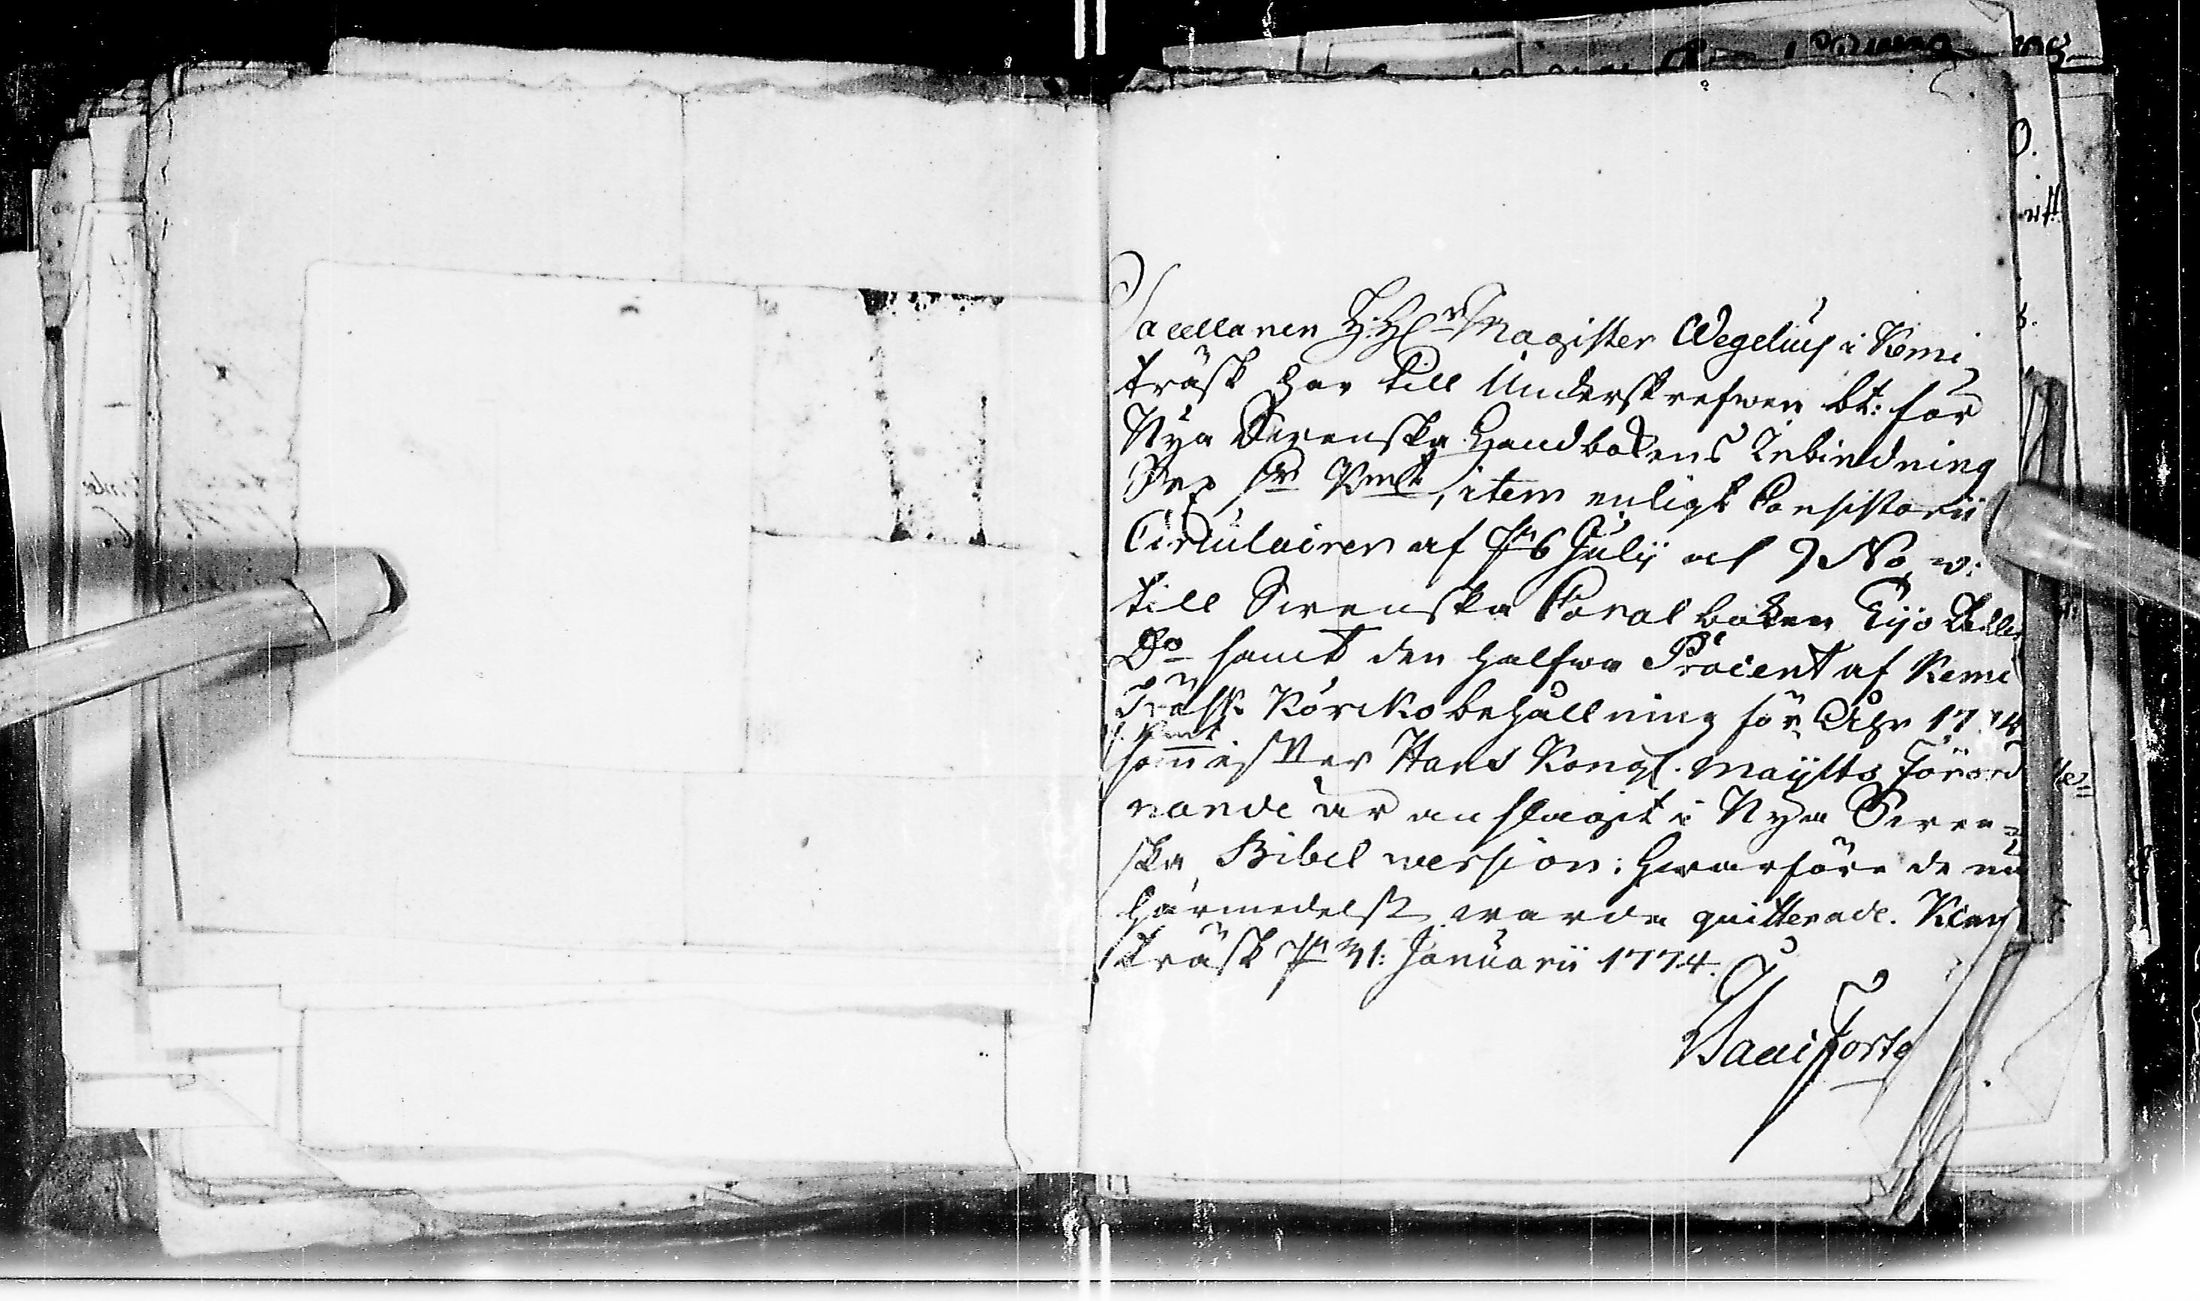 Sacellanen H: H:r Magister Wegelius i Kemi
träsk har till Underskrefwen bt: för
Nya Swenska Handbokens Inbindning
Sex s:r Kmt, item enligt Consistorii
Circulairer af d:n 6 Julii och 9 Nov:
till Swenska Coral boken Tijo Daler
D:o samt den halfwa Procent af Kemi
Träsk Kÿrko behållning för Åhr 1774
som efter Hans Kongl. Maÿtts Förord
nande är anslagit i Nya Swen=
ska Bibel version: hwarföre de nu
härmedelst warda quitterade. Kemi
träsk d:n 31: Januarii 1774.